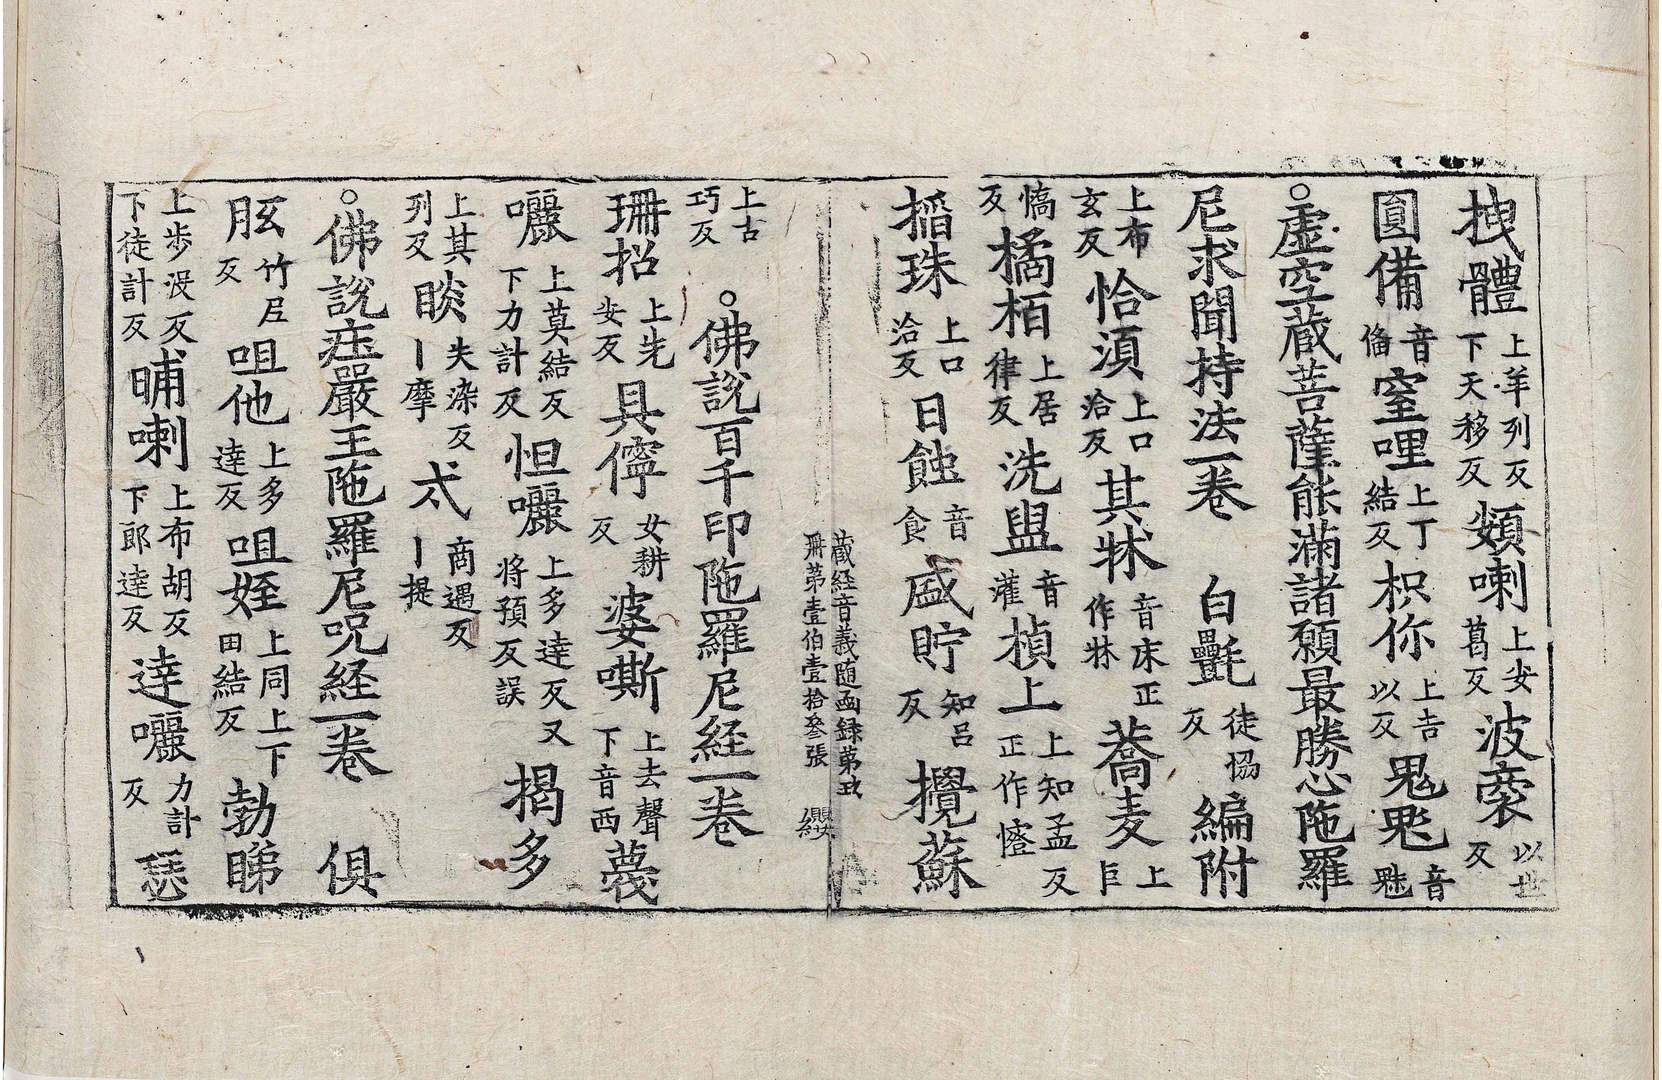 拽體上羊列反下天移反頞喇上安葛反波裔以世反
圓備音俻窒哩上丁結反枳你上吉以反鬼鬽音魅
○虚空蔵菩薩能滿諸願最勝心陁羅
尼求聞持法一卷 白㲲徒協反編附
上布玄反恰湏上口洽反其牀音床正作牀蕎麦上巨
憍反橘栢上居律反洗盥音灌楨上上知孟反正作㡧
搯珠上口洽反日蝕音食盛貯知吕反攪蘇
蔵経音義随函録苐
冊苐壹伯壹拾叄張 纓
上古巧反 ○佛說百千印陁羅尼経一卷
珊招上先安反具儜女耕反婆嘶上去聲下音西薎
囇上莫結反下力計反怛囇上多達反又将預反誤揭多
上其列反睒失染反丨摩忒商遇反丨提
○佛說庒嚴王陁羅尼呪経一卷 俱
胘竹尼反咀他上多逹反咀姪上同上下田結反勃睇
上歩沒反下徒計反晡喇上布胡反下郎逹反逹囇力計反瑟